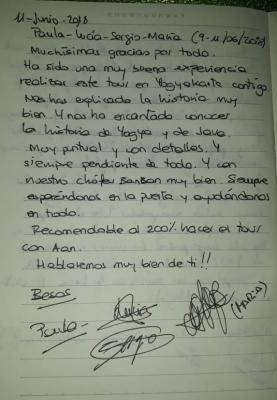 11-Junio-2018
Paula-Lucía-Sergio-María (9-11/06/2018)
Muchísimas gracias por todo.
Ha sido una muy buena experiencia
realizar este tour en Yogyakarta contigo.
Nos has explicado la historia muy
bien. Y nos ha encantado conocer
la historia de Yogya y de Java.
Muy puntual y con detalles. Y
siempre pendiente de todo. Y con
nuestro chófer muy bien. Siempre
esperándonos en la puerta y ayudándonos
en todo.
Recomendable al 200% hacer el tour
con Aan.
Hablaremos muy bien de ti!!
Besos
Paula
(MARÍA)